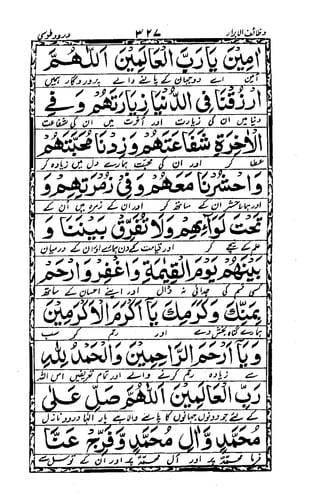 وظائف الابرار ۳۲۷ درود طوسی
اٰمِيْنَ يَارَبَّ الْعَالَمِيْنَ اَللّٰهُمَّ
آمین اے دوجہان کے پالنے والے پروردگار ہمیں
ارْزُقْنَا فِي الدُّنْيَا زِيَارَتَهُمْ وَفِي
دنیا میں ان کی زیارت اور آخرت میں ان کی شفاعت
الْاٰخِرَةِ شَفَاعَتَهُمْ وَزِدْنَا مَحَبَّتَهُمْ
عطا کر اور ان کی محبت ہمارے دل میں زیادہ کر
وَاحْشُرْنَا مَعَهُمْ وَفِيْ زُمْرَتِهِمْ وَ
اور ہمارا حشر ان کے ساتھ کر اور ان کے زمرہ میں اُن کے
تَحْتَ لِوَآئِهِمْ وَلَا تُفَرِّقْ بَيْنَنَا وَ
علم کے نیچے کر اور قیامت کے دن ہمارے اور ان کے درمیان
بَيْنَهُمْ يَوْمَ الْقِيٰمَةِ وَاغْفِرْ وَارْحَمْ
کسی قسم کی جدائی نہ ڈال اور اپنے احسان کے ساتھ
بِمَنِّكَ وَكَرَمِكَ يَآ اَكْرَمَ الْاَكْرَمِيْنَ
ہمارے گناہ بخش دے اور رحم کر سب
وَيَآ اَرْحَمَ الرَّاحِمِيْنَ وَالْحَمْدُ لِلّٰهِ
سے زیادہ رحم کرنے والے اور تمام تعریفیں اس اللہ
رَبِّ الْعَالَمِيْنَ اَللّٰهُمَّ صَلِّ عَلٰى
کے لئے جو دونوں جہانوں کا پالنے والا ہے بار الہا درود نازل
مُحَمَّدٍ وَّاٰلِ مُحَمَّدٍ وَّفَرِّجْ عَنَّا
فرما محمدؐ پر اور آل محمدؐ پر اور ان کے توسل سے